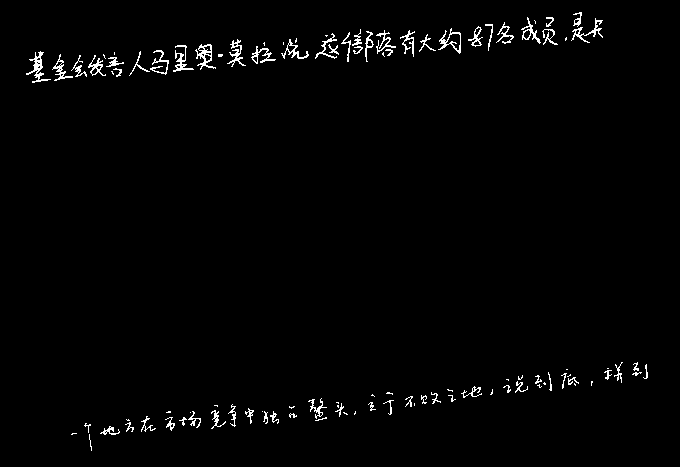 基金会发言人马里奥·莫拉说,该部落有大约87名成员,是卡
一个地方在市场竞争中独占鳌头,立于不败之地,说到底,拼到